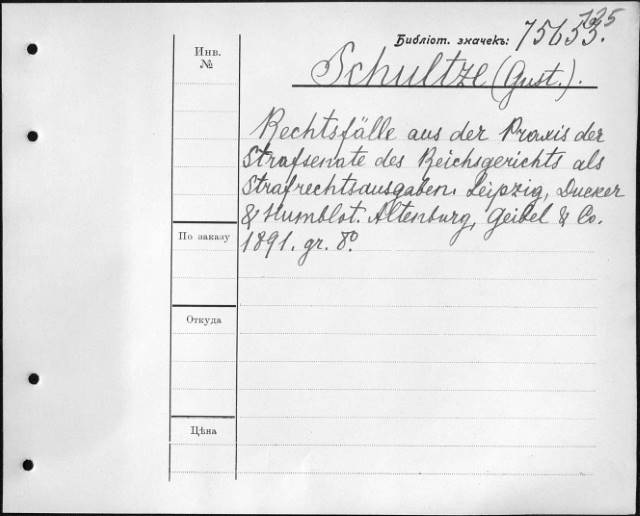 735
Библіот. значекъ: 75653.
Инв.
№
Schultze (Gust.).
Rechtsfälle aus der Praxis der
Strafsenate des Reichsgerichts als
Strafrechtsausgaben. Leipzig, Ducker
& Humblot. Altenburg, Geibel & Co.
1891. gr. 8°.
По заказу
Откуда
Цѣна